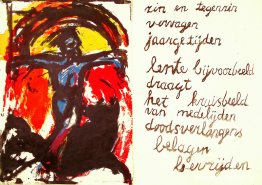 zin en tegenzin
v
jaargetijden
lente bijvoorbeeld
draagt
het kruisbeeld
van medelijden
doodsverlangens
belagen
berrijden